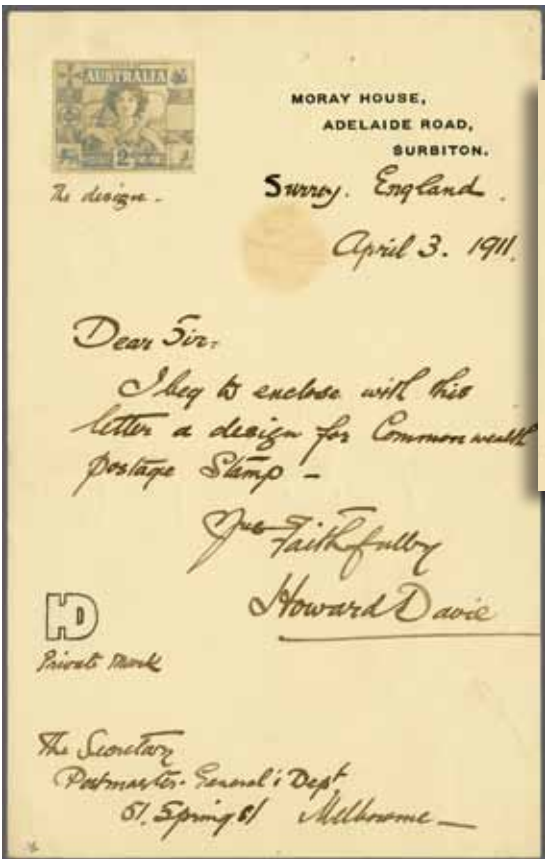 AUSTRALIA
2
The design -
MORAY HOUSE,
ADELAIDE ROAD,
SURBITON.
Surrey. England.
April 3. 1911.
Dear Sir.
I beg to enclose with this
letter a design for Commonwealth
Postage Stamp -
Yrs Faithfully
Howard Davie
HD
Private Mark
The Secretary
Postmaster-General's Dept
51. Spring St Melbourne -